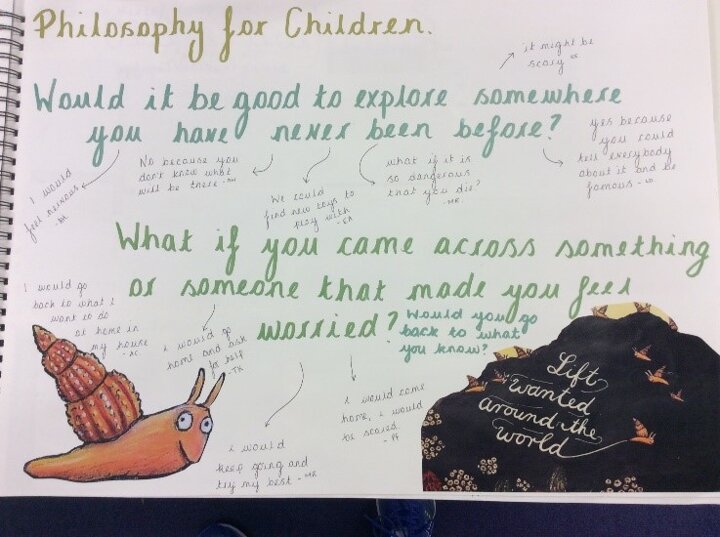 Philosophy for Children.
it might be
scary
Would it be good to explore somewhere
you have never been before?
yes because
you could
tell everybody
about it and be
famous
I would
feel nervous
No because you
don't know what
will be there
We could
find new toys to
play with
what if it is
so dangerous
that you die?
- MR
What if you came across something
or someone that made you feel
worried?
Would you go
back to what
you know?
I would go
back to what I
want to do
at home in
my house
I would go
home and ask
for help
I would
keep going and
try my best - MR
I would come
home, I would
be scared
Lift
wanted
around the
world